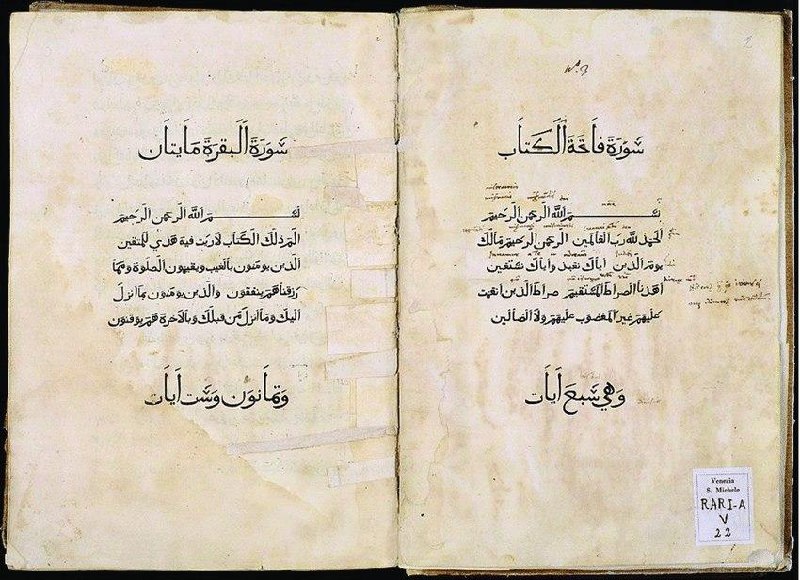 سورة فاتحة الكتاب
بسم الله الرحمن الرحيم
الحمد لله رب العالمين الرحمن الرحيم مالك
يوم الدين اياك نعبد واياك نستعين
اهدنا الصراط المستقيم صراط الذين انعمت
عليهم غير المغضوب عليهم ولا الضالين
وهي سبع ايات
Venezia
S. Michele
RARI-A
V
22
سورة البقرة مايتان
بسم الله الرحمن الرحيم
الم ذلك الكتاب لا ريب فية هدي للمتقين
الذين يومنون بالغيب ويقيمون الصلوة ومما
رزقناهم ينفقون والذين يومنون بما انزل
اليك وما انزل من قبلك وبالاخرة هم يوقنون
وثمانون وست ايات